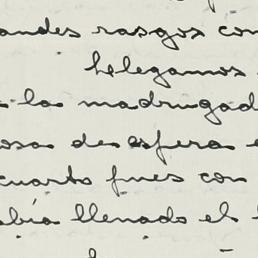 andes rasgos con
helegamos
a la madrugad
osa de esfera e
cuarto pues con
abía llenado el